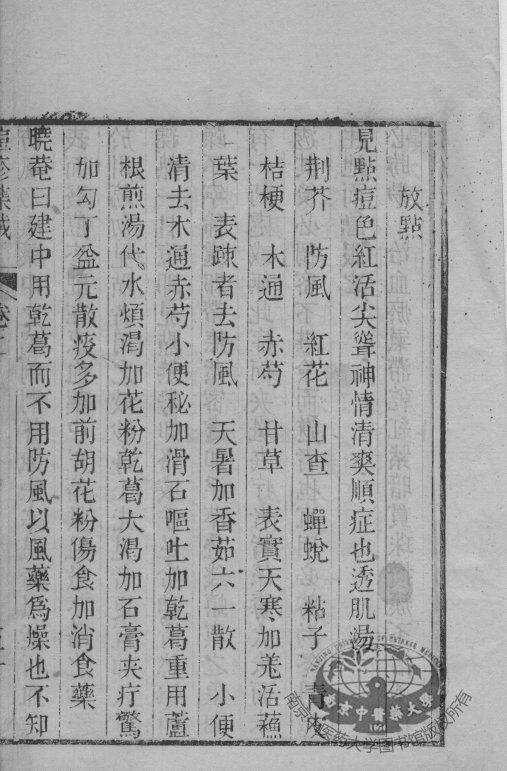 放點
見點痘色紅活尖聳神情清爽順症也透肌湯
荆芥 防風 紅花 山查 蟬蛻 粘子 青皮
桔梗 木通 赤芍 甘草 表實天寒加羗活蘓
葉 表疎者去防風 天暑加香茹六一散 小便
清去木通赤芍小便秘加滑石嘔吐加乾葛重用蘆
根煎湯代水煩渴加花粉乾葛大渴加石膏夾疔驚
加勾丁益元散痰多加前胡花粉傷食加消食藥
曉菴曰建中用乾葛而不用防風以風藥爲燥也不知
南京中醫藥大學
南京中医药大学图书馆版权所有